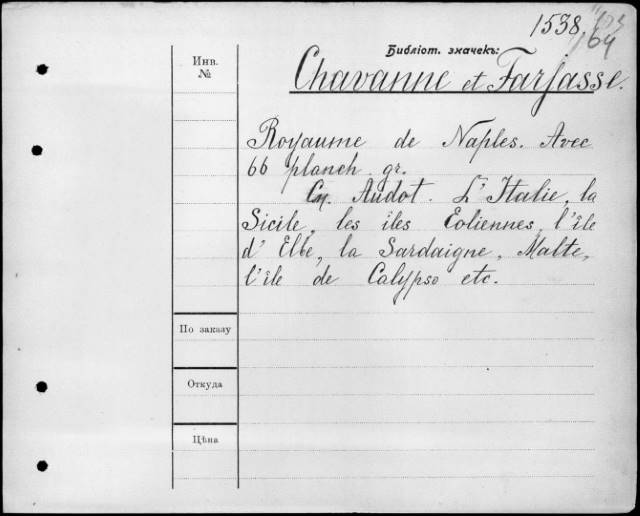 1538.
64
Библіот. значекъ:
Инв.
№
Chavanne et Farjasse.
Royaume de Naples. Avec
66 planch. gr.
Сл. Audot. L'Italie, la
Sicile, les îles Eoliennes, l'île
d'Elbe, la Sardaigne, Malte,
l'île de Calypso etc.
По заказу
Откуда
Цѣна